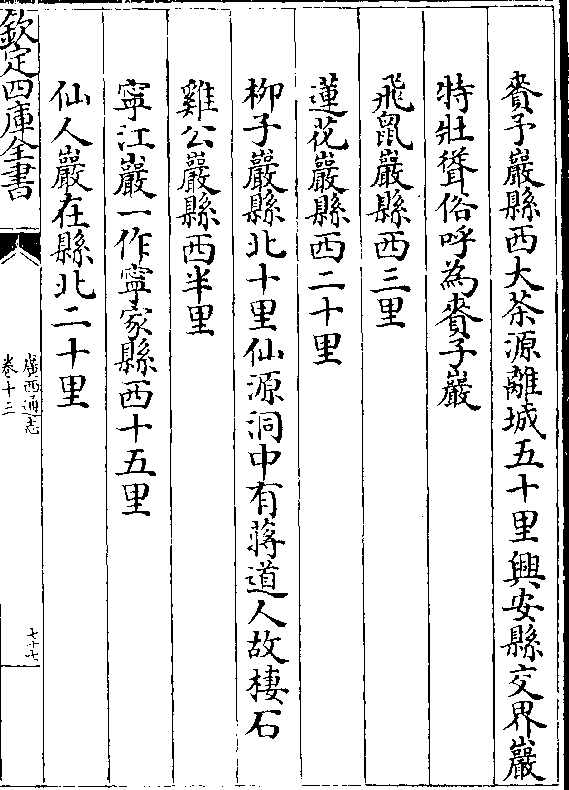 賚予巖縣西大茶源離城五十里興安縣交界巖
特壯聳俗呼為賚子巖
飛鼠巖縣西三里
蓮花巖縣西二十里
栁子巖縣北十里仙源洞中有蔣道人故棲石
雞公巖縣西半里
寧江巖一作寧家縣西十五里
仙人巖在縣北二十里
欽定四庫全書
廣西通志
卷十三
七十七